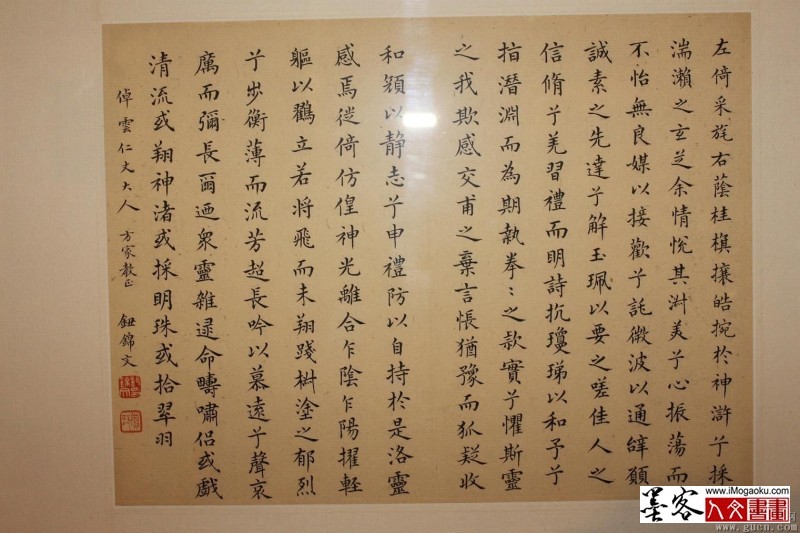 左倚采旄右蔭桂旗攘皓捥於神滸兮採
湍瀨之玄芝余情悅其淑美兮心振蕩而
不怡無良媒以接歡兮託微波以通辭願
誠素之先達兮解玉珮以要之嗟佳人之
信脩兮羌習禮而明詩抗瓊珶以和予兮
指潛淵而為期執拳〻之款實兮懼斯靈
之我欺感交甫之棄言悵猶豫而狐疑收
和顏以静志兮申禮防以自持於是洛靈
感焉徙倚仿偟神光離合乍陰乍陽擢輕
軀以鸖立若將飛而未翔踐椒塗之郁烈
兮步衡薄而流芳超長吟以慕遠兮聲哀
厲而彌長爾迺衆靈雜遝命疇嘯侶或戲
清流或翔神渚或採明珠或拾翠羽
倬雲仁丈大人 方家教正 鈕錦文
墨客 www.iMogaoku.com
人文書畫
www.gucn.com